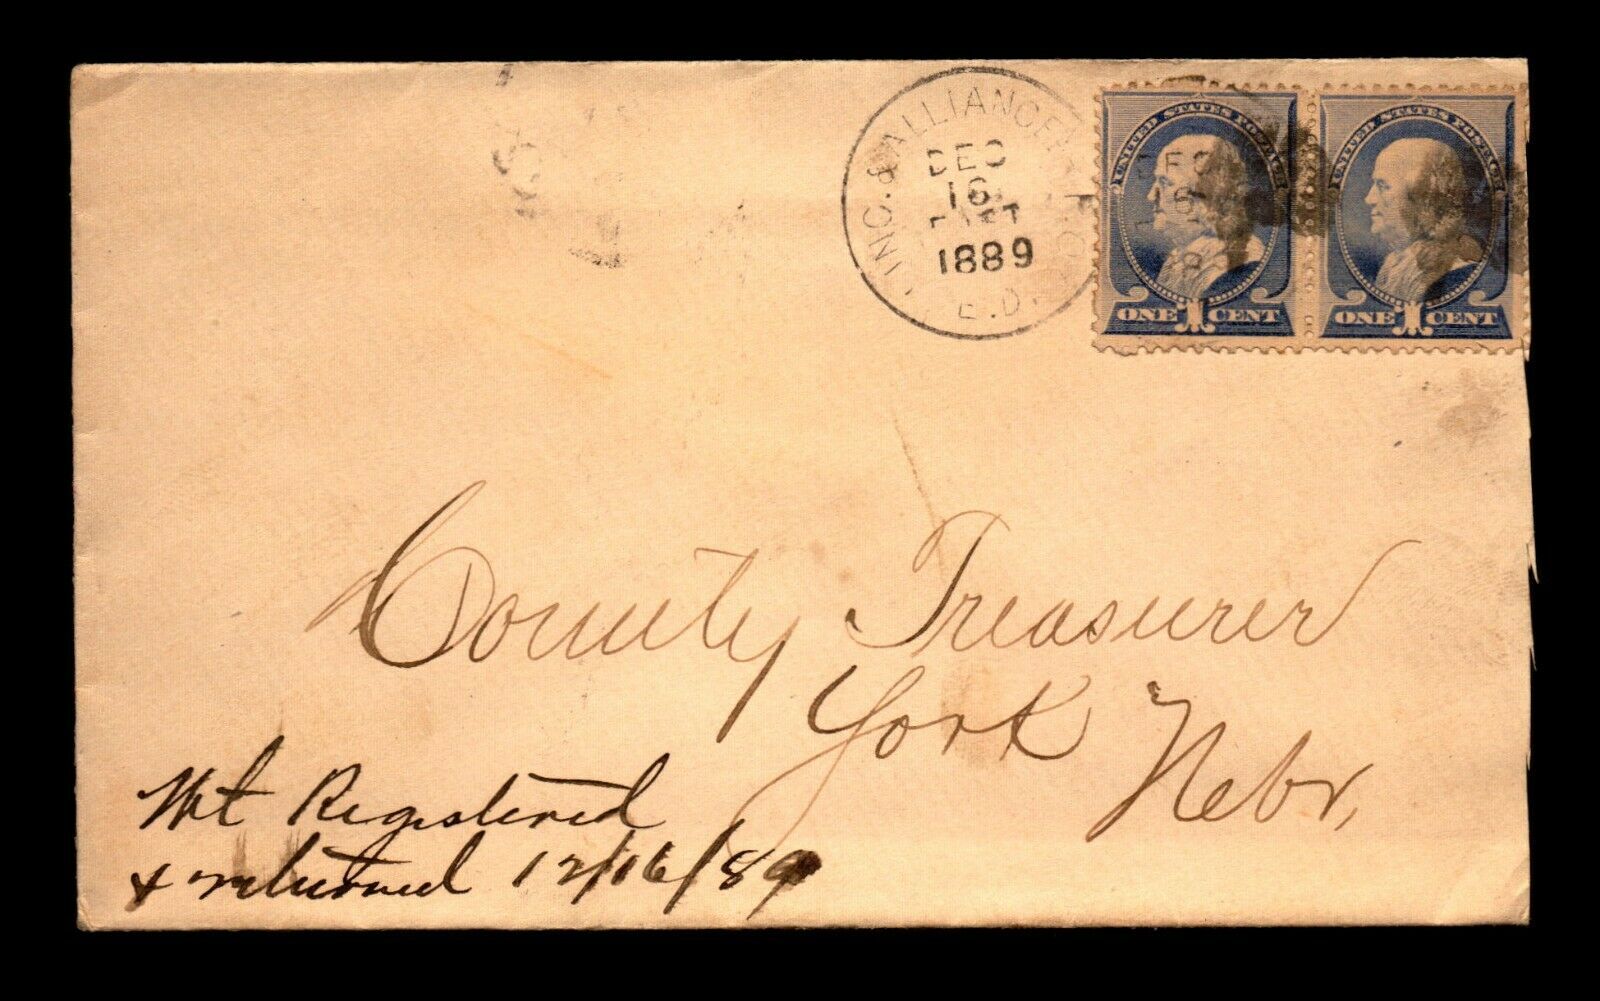 LINC. & ALLIANCE R.P.O.
DEC
16
EAST
1889
E.D.
UNITED STATES POSTAGE
ONE 1 CENT
UNITED STATES POSTAGE
ONE 1 CENT
County Treasurer
York
Nebr,
Registered
& returned 12/16/89